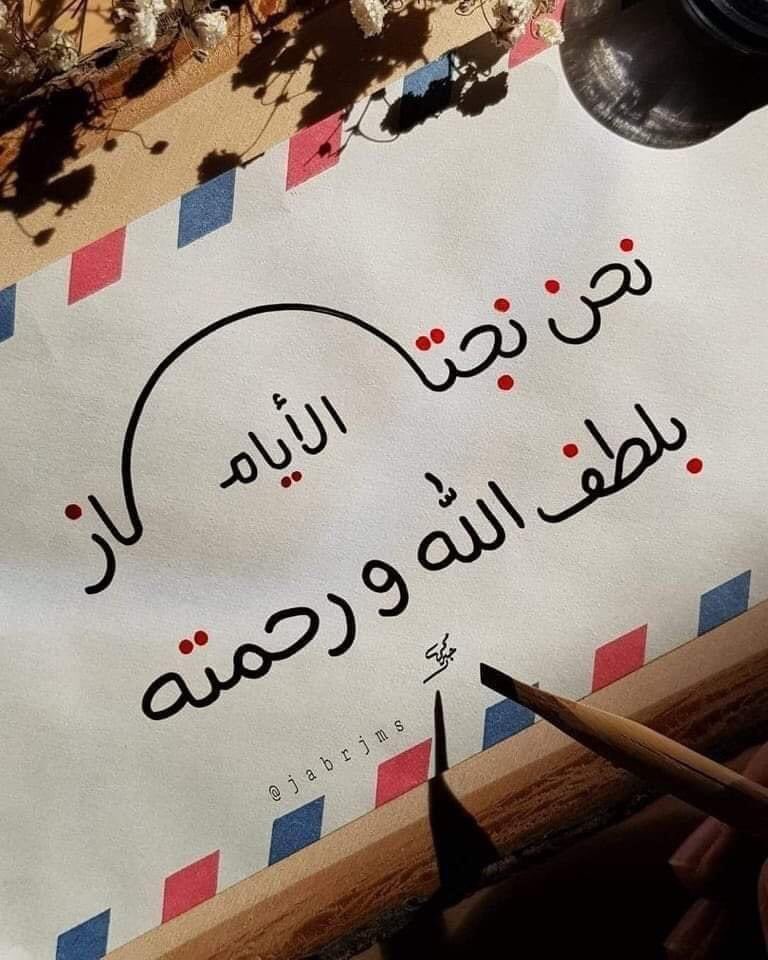 نحن نجتاز
الأيام
بلطف الله و رحمته
@jabrjms